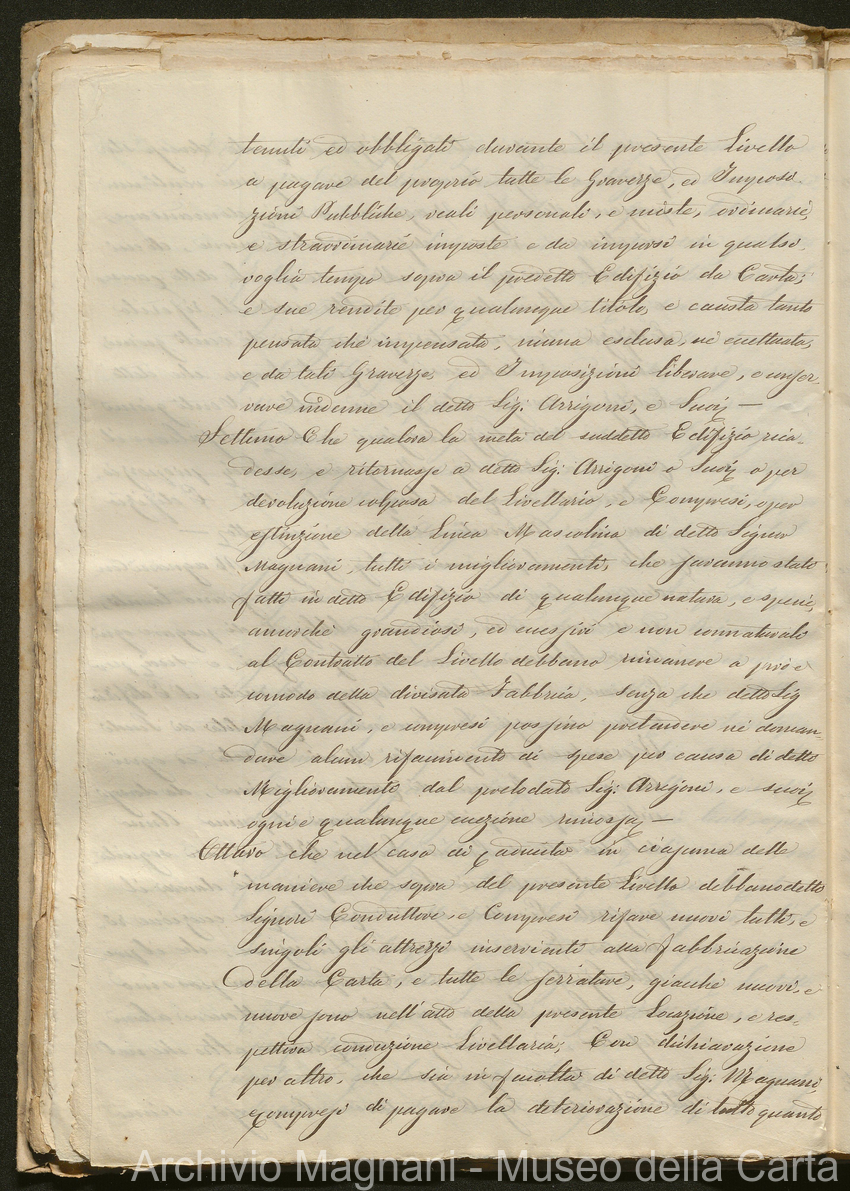 tenuti ed obbligati durante il presente Livello
a pagare del proprio tutte le Graverze, ed Imposi-
zioni Pubbliche, reali personali, e miste, ordinarie,
e straordinarie imposte e da imporsi in qualsi-
voglia tempo sopra il predetto Edifizio da Carta;
e sue rendite per qualunque titolo, e causa tanto
pensata che impensata, niuna esclusa, ne eccettuata,
e da tali Graverze, ed Imposizioni liberare, e conser-
vare indenne il detto Sig: Arrigoni, e Suoi —
Settimo Che qualora la metà del suddetto Edifizio rica-
desse, e ritornasse a detto Sig: Arrigoni o Suoi o per
devoluzione colposa del Livellario, e Compresi, o per
estinzione della Linea Mascolina di detto Signor
Magnani, tutti i miglioramenti, che saranno stati
fatti in detto Edifizio di qualunque natura, e specie,
ancorchè grandiosi, ed eccessivi e non connaturali
al Contratto del Livello debbano rimanere a prò e
comodo della divisata Fabbrica, senza che detto Sig
Magnani, e compresi possino pretendere nè doman-
dare alcun rifacimento di spese per causa di detto
Miglioramento dal prelodato Sig: Arrigoni, e suoi
ogni e qualunque eccezione rimossa, —
Ottavo che nel caso di caducità in ciascuna delle
maniere che sopra del presente Livello debbano detto
Signori Conduttore, e Compresi rifare nuovi tutti, e
singoli gli attrezzi inservienti alla fabbricazione
della Carta, e tutte le serrature, giacchè nuovi, e
nuove sono nell'atto della presente Locazione, e res-
pettiva conduzione Livellaria; Con dichiarazione
per altro, che sia in facoltà di detto Sig: Magnani,
e compresi di pagare la deteriorazione di tutto quanto
Archivio Magnani - Museo della Carta